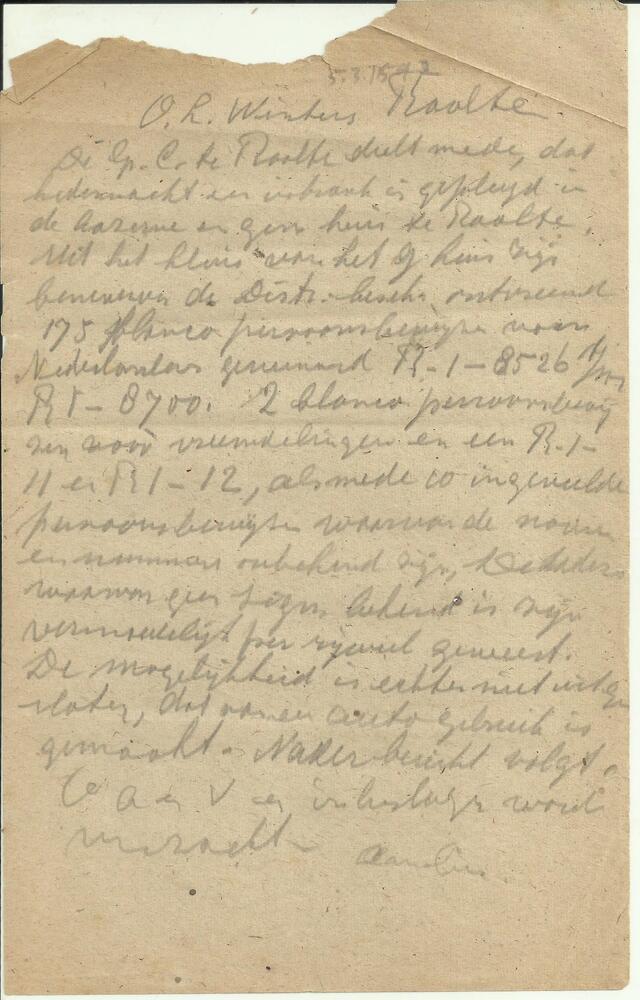 5.3.1943
O. L. Winters Raalte
De Gp. C. te Raalte deelt mede, dat
hedennacht een inbraak is gepleegd in
de kazerne en gem. huis te Raalte.
Uit het kluis van het g. huis zijn
de Distr. besch. ontvreemd
175 blanco persoonsbewijzen voor
Nederlanders genummerd R-1-8526 t/m
R1-8700. 2 blanco persoonsbewij
zen voor vreemdelingen en een R.1-
11 en R1-12, alsmede 10 ingevulde
persoonsbewijzen waarvan de namen
en nummers onbekend zijn, De daders
waarvan geen bekend is zijn
vermoedelijk per rijwiel geweest.
De mogelijkheid is echter niet uitge
sloten, dat van een auto gebruik is
gemaakt. Nader bericht volgt.
O a en V en inbeslagn wordt
verzocht